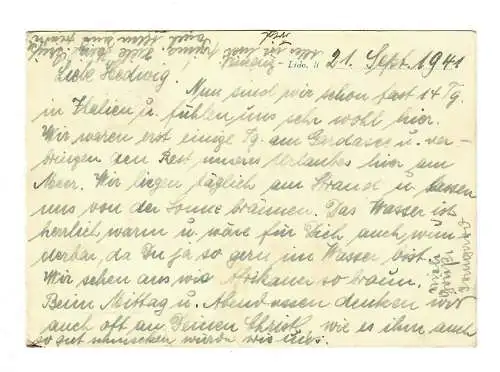 Venedig - Lido, d. 21. Sept. 1941
Liebe Hedwig!
Nun sind wir schon fast 14 Tg.
in Italien u. fühlen uns sehr wohl hier.
Wir waren erst einige Tg. am Gardasee u. ver-
bringen den Rest unseres Urlaubes hier am
Meer. Wir liegen täglich am Strande u. lassen
uns von der Sonne bräunen. Das Wasser ist
herrlich warm u. wäre für Dich, auch, wun-
derbar, da Du ja so gern im Wasser bist.
Wir sehen aus wie Afrikaner so braun.
Beim Mittag u. Abendessen denken wir
auch oft an Deinen Christl, wie es ihm auch
so gut schmecken würde wie uns.